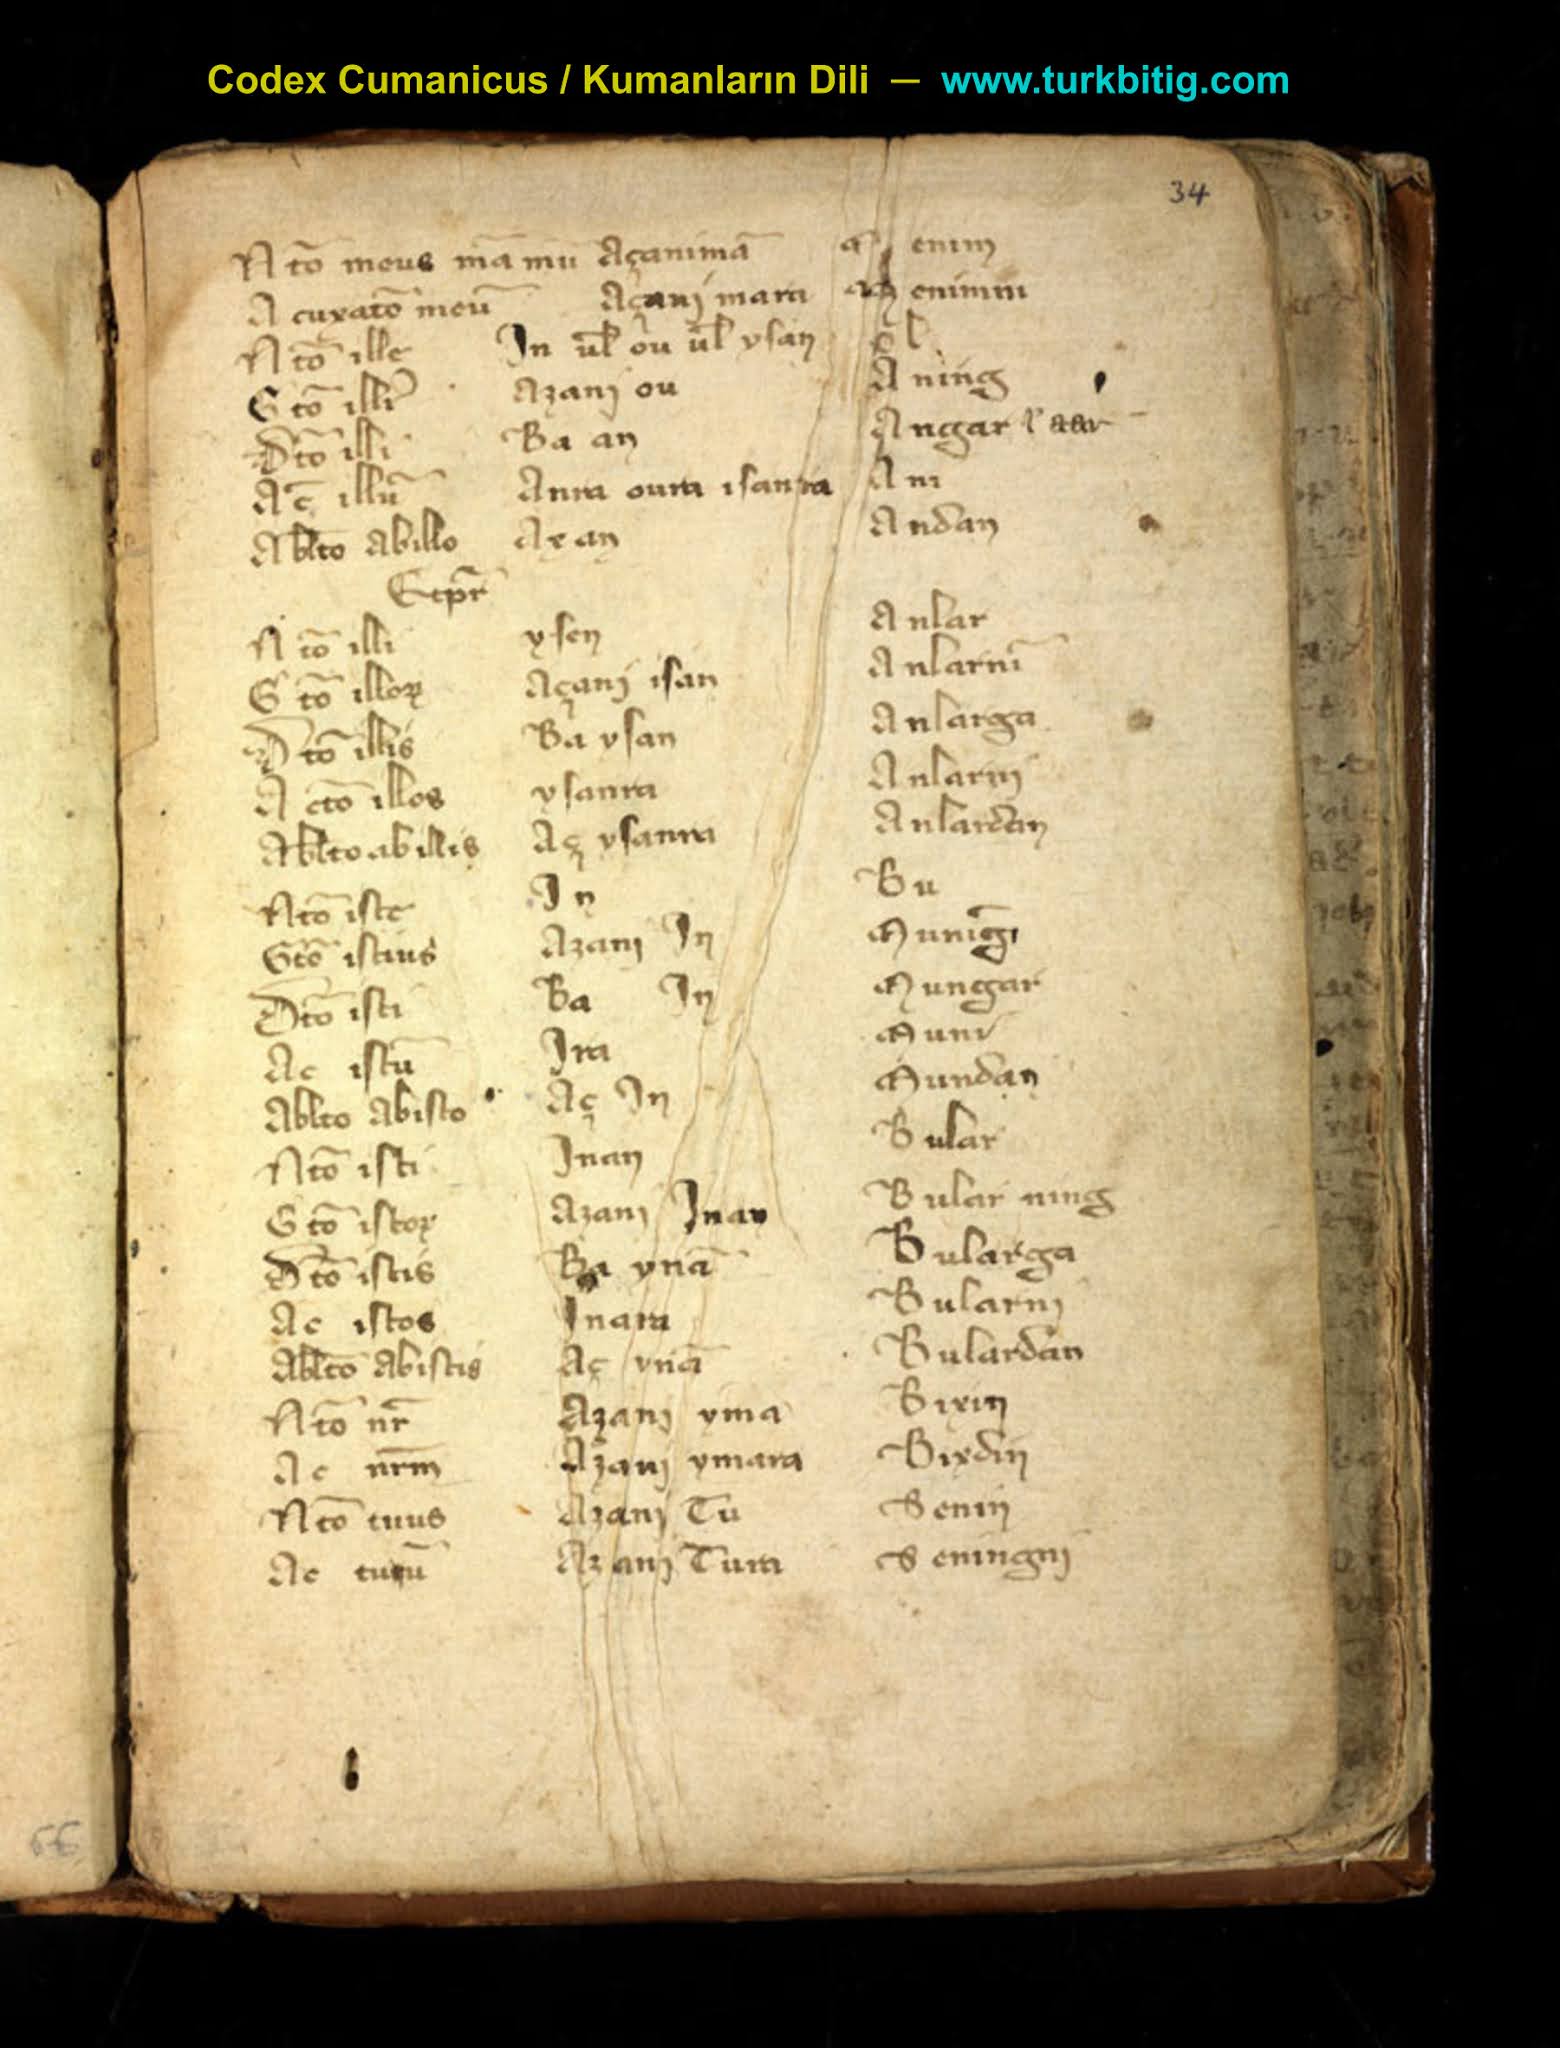 Codex Cumanicus / Kumanların Dili — www.turkbitig.com
34
Ntō meus mā mū Açanimā Menim
Acuxatō meū Açanj mara Menimni
Ntō ille In ul̄ ou ul̄ ysan Ol
Gtō illiꝰ Azanj ou Aning
Dtō illi Ba an Angar l' aar
Ac̄ illū Anra oura isanra Ani
Ablto abillo Ax an Andan
Etpr̄
Ntō illi ysen Anlar
Gtō illoꝝ Açanj isan Anlarnī
Dtō illis Ba ysan Anlarga
Actō illos ysanra Anlarnj
Ablto abillis Aç ysanra Anlardan
Ntō iste In Bu
Gtō istius Azanj In Munig̅
Dtō isti Ba In Mungar
Ac istū Ira Muni
Ablto abisto Aç In Mundan
Ntō isti Inan Bular
Gtō istoꝝ Azanj Inan Bular ning
Dtō istis Ba ynā Bularga
Ac istos Inara Bularnj
Abltō abistis Aç ynā Bulardan
Ntō nr̄ Azanj yma Bixin
Ac nr̄m Azanj ymara Bixdin
Ntō tuus Azanj Tu Senin
Ac tuuū Azanj Tura Seningnj
66